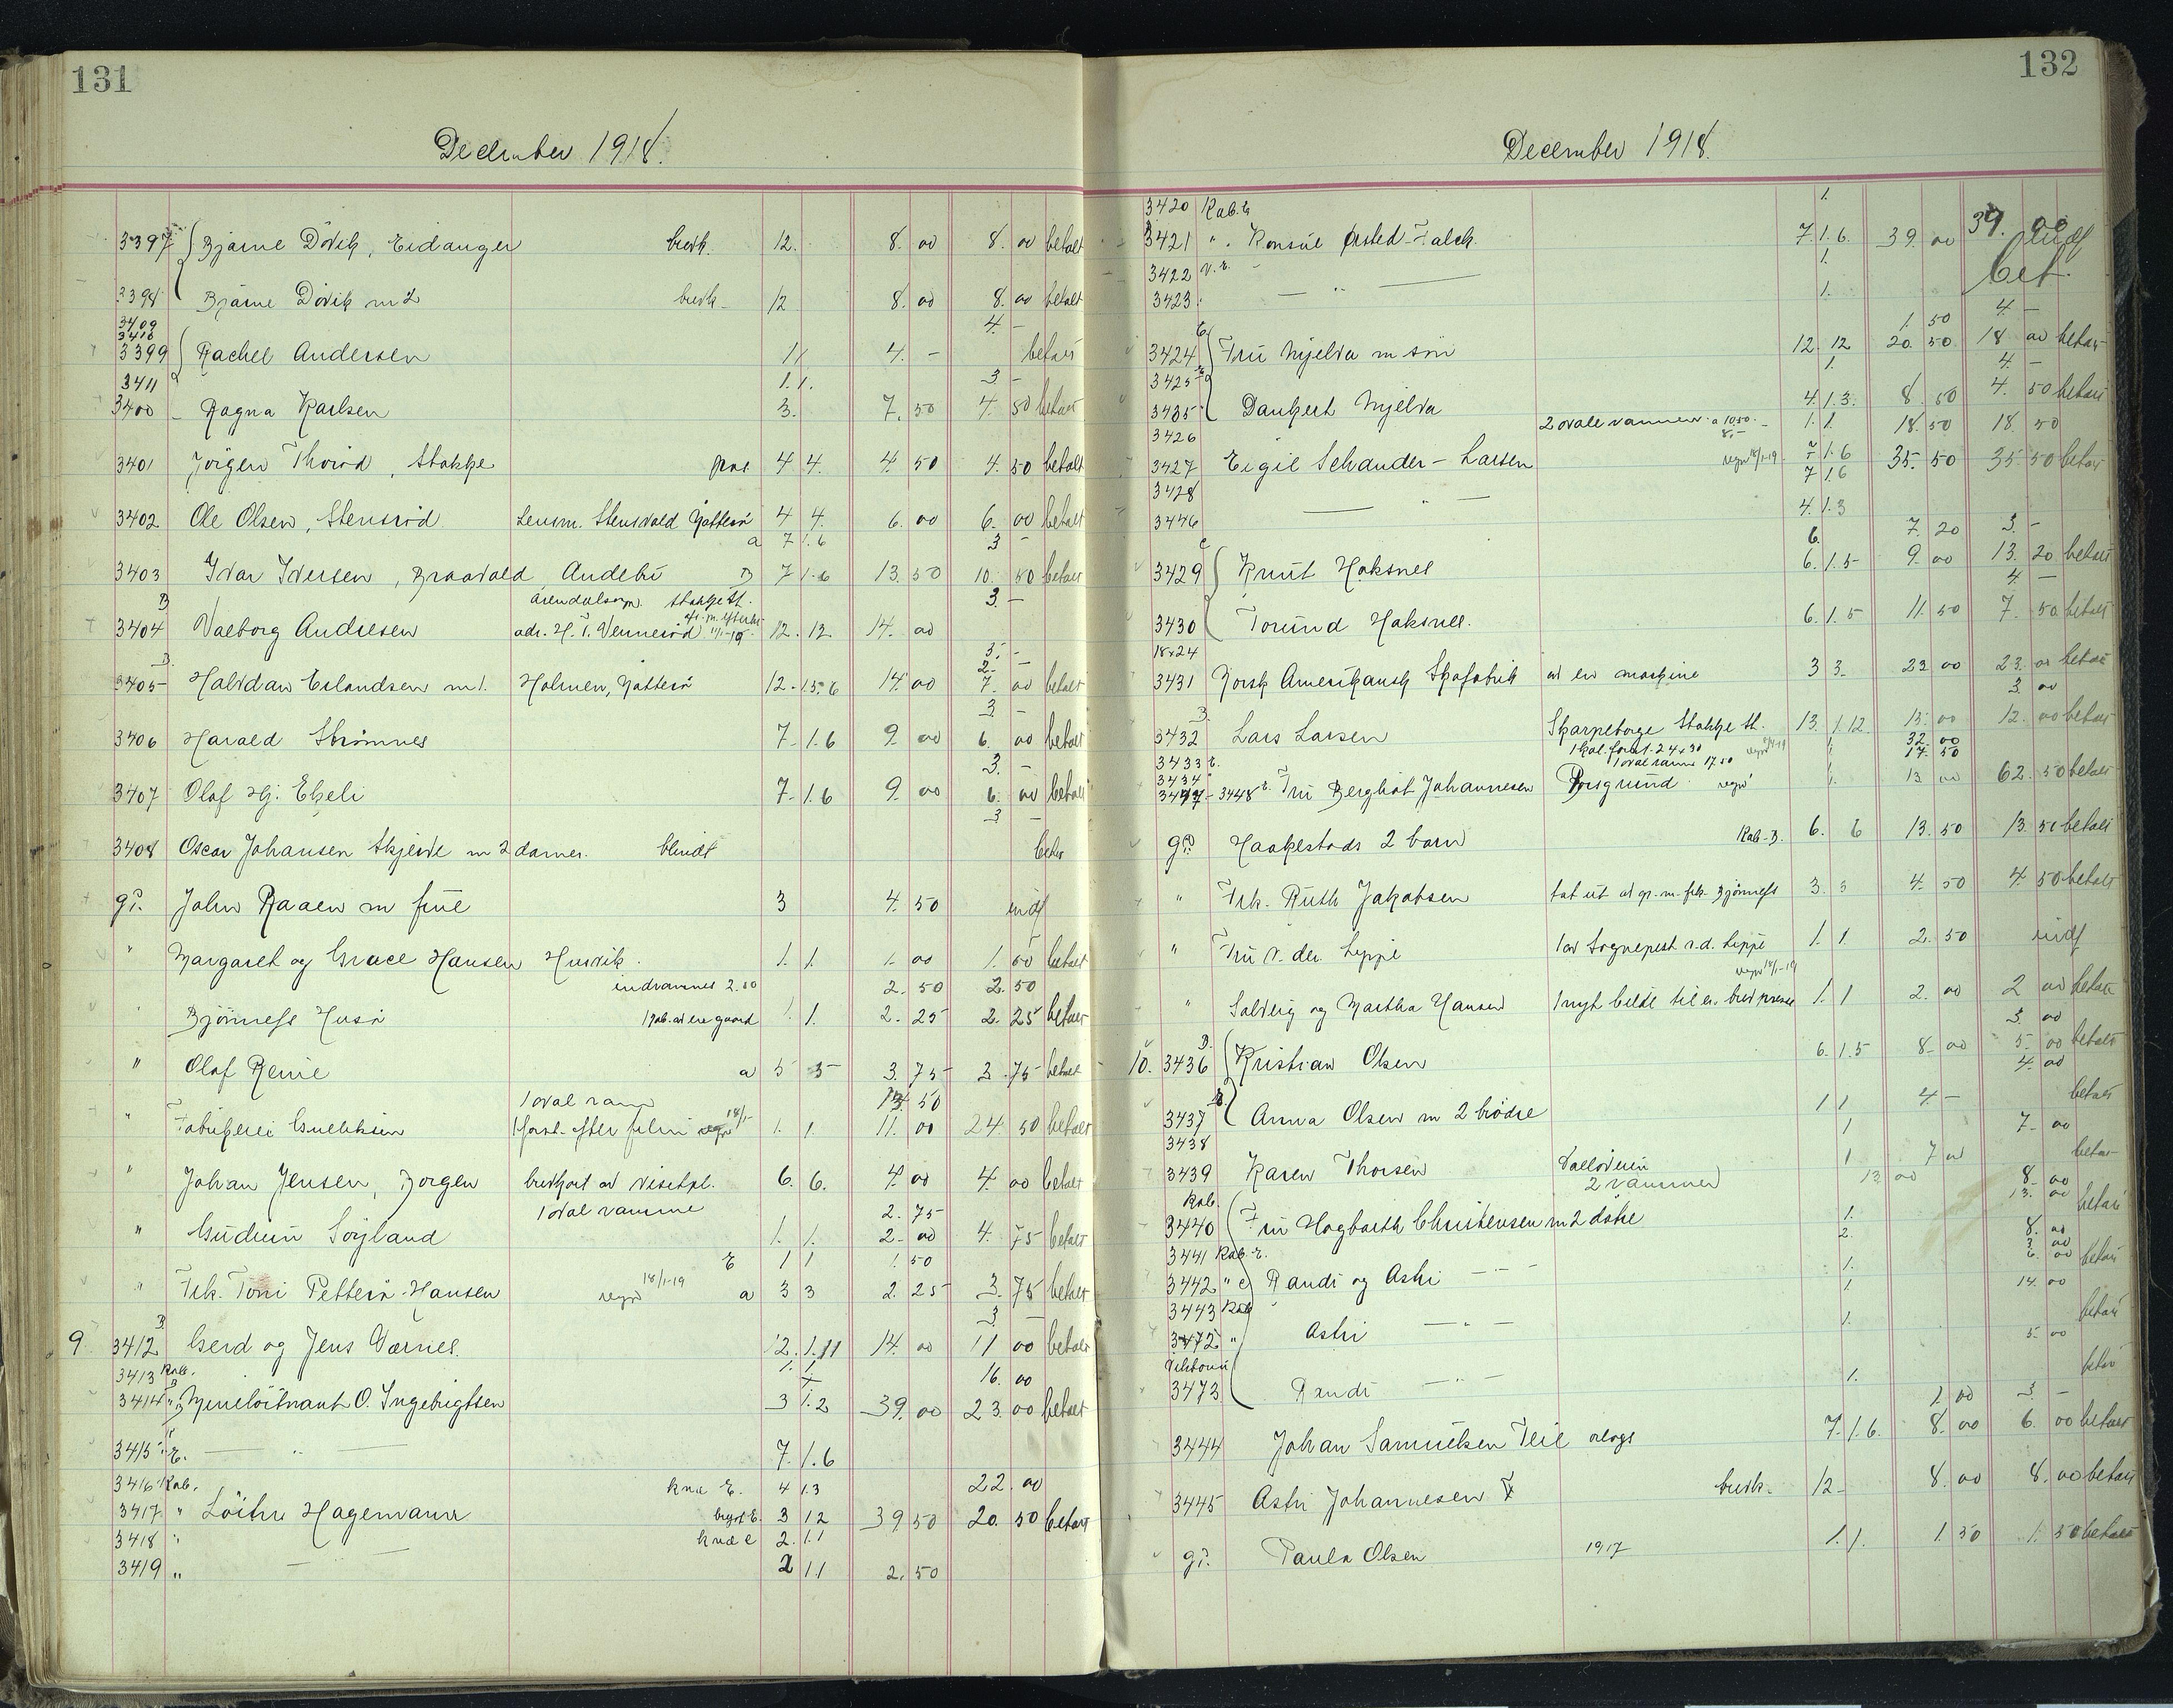 131
December 1918.
3397 Bjarne Dövik, Eidanger brevk. 12. 8. 00 8. 00 betalt
3398 Bjarne Dövik m 2 brevk. 12 8. 00 8. 00 betalt
3409 4. -
3410
3399 Rachel Andersen 1 1 4. - betalt
3411 1. 1. 3. -
3400 - Ragna Karlsen 3. 7. 50 4. 50 betalt
3401 Jörgen Thoröd, Stokke 4 4. 4. 50 4. 50 betalt
3402 Ole Olsen, Stensröd Lensm. Stensvold Nötterö 4 4. 6. 00 6. 00 betalt
a 7 1.6 3 -
3403 Ivar Iversen, Braavold Andebu B 7 1.6 13. 50 10. 50 betalt
B Stokke St. 3. -
3404 Valborg Andresen adr. H. T. Venneröd 12. 12. 14. 00
3. -
2. -
3405 Halvdan Erlandsen m 1. Holmen, Nötterö 12. 14. 00 7. 00 betalt
3 -
3406 Harald Strömnes 7. 1.6 9. 00 6. 00 betalt
3. -
3407 Olaf Hj. Ekeli 7. 1.6 9. 00 6. 00 betalt
3 -
3408 Oscar Johansen Skjerve m 2 damer. blindt betalt
gp. John Raaen m frue 3 4. 50 indf
" Margaret og Grace Hansen Husvik. 1. 1. 1. 00 1. 00 betalt
indrammes 2.50 2. 50 2. 50
Bjönness Husö 1 kab. av en gaard 1. 1. 2. 25 2. 25 betalt
" Olaf Renie a 5 5 3. 75 3. 75 betalt
1 oval ramme 13. 50
" 1 forst. efter film 18/1- 1. 1. 11. 00 24. 50 betalt
" Johan Jensen, Borgen brevkort av visitpl. 6. 6. 4. 00 4. 00 betalt
1 oval ramme 2. 75
" Gudrun Söyland 1. 1. 2. 00 4. 75 betalt
E 1 1 1. 50
" Frk. Toni Petterö-Hansen regn 18/1-19 a 3 3 2. 25 3. 75 betalt
B. 3. -
9. 3412 Gerd og Jens Værnes. 12. 1.11 14. 00 11 00 betalt
3413 Kab. 1. 1. 16. 00
3414 " O. Ingebrigtsen 3 1.2 39. 00 23. 00 betalt
3415 " E. — " — 7. 1.6
3416 Kab. knæ E. 4 1.3 22. 00
3417 " Löitn. Hagemann bryst E. 3 1 2 39 50 20. 50 betalt
3418 " knæ E 2. 1.1
3419 " — 2 1.1 2. 50
132
December 1918.
3420 Kab. E 1.
3421 " . Konsul Ørsted-Falck. 7. 1. 6. 39. 00 39. 00 indf
3422 V. E. - 1. bet.
3423 — " — 1.
1. 50 4. -
3424 Fru Mjelva m sön 12. 12 20. 50 18 00 betalt
3425 1. 4. -
3435 Dankert Mjelva 4. 1. 3. 8. 50 4. 50 betalt
3426 2 ovale rammer a 10.50. 8.- 1. 1. 18. 50 18. 50
3427 Eigil Schander-Larsen regn 18/1-19 7 1.6 35. 50 35. 50 betalt
3428 7 1.6
3446 — " — 4. 1. 3
6. 7. 20 3. -
3429 Knut Haksnes 6. 1. 5 9. 00 13. 20 betalt
4 -
3430 Torund Haksnes. 6. 1. 5 11. 50 7. 50 betalt
18x24
3431 Norsk Amerikansk Skofabrik av en maskine 3 3. 23 00 23. 00 betalt
3. 00
3432 Lars Larsen Skarpeborge Stokke St. 13. 1. 12. 15. 00 12. 00 betalt
3433 E. 1 kol. forst. 24x30 1. 32. 00
3434 " 1 oval ramme 17.50 1. 17. 50
3447 - 3448 E. Fru Bergliot Johannesen Porsgrund regn 1. 13 00 62. 50 betalt
gp. Haakestads 2 barn Kab-B. 6. 6 13. 50 13. 50 betalt
" Frk. Ruth Jakobsen tat ut av gr. m. frk. Bjönness 3. 3 4. 50 4. 50 betalt
" Fru v. der. Lippe 1 av Sognepest v.d. Lippe 1. 1. 2. 50 indf
regn 18/1-19
" Solveig og Martha Hansen 1 nyt billede til 1. 1 2. 00 2 00 betalt
3. 00
10. 3436 Kristian Olsen 6. 1. 5 8. 00 5. 00 betalt
4. 00
3437 Anna Olsen m 2 brödre 1 1 4. - betalt
3438 1 7. 00
3439 Karen Thorsen 1 7 00 betalt
Kab. 2 rammer 13 00 8. 00
13. 00
3440 Fru Hagbarth Christensen m 2 dötre 1. betalt
3441 Kab. E. 2. 8. 00
3442 " e Randi og Astri — " — 1. 6. 00 betalt
3443 Kab " 1. 14. 00
3472 " Astri — " — 1. betalt
Viktoria 5. 00
3473 Randi — " — 1. betalt
1. 00 3. -
3444 Johan Samuelsen Teie 7. 1. 6. 8. 00 6. 00 betalt
3445 Astri Johannesen brevk. 12. 8. 00 8. 00 betalt
gp. Paula Olsen 1917 1. 1. 1. 50 1. 50 betalt